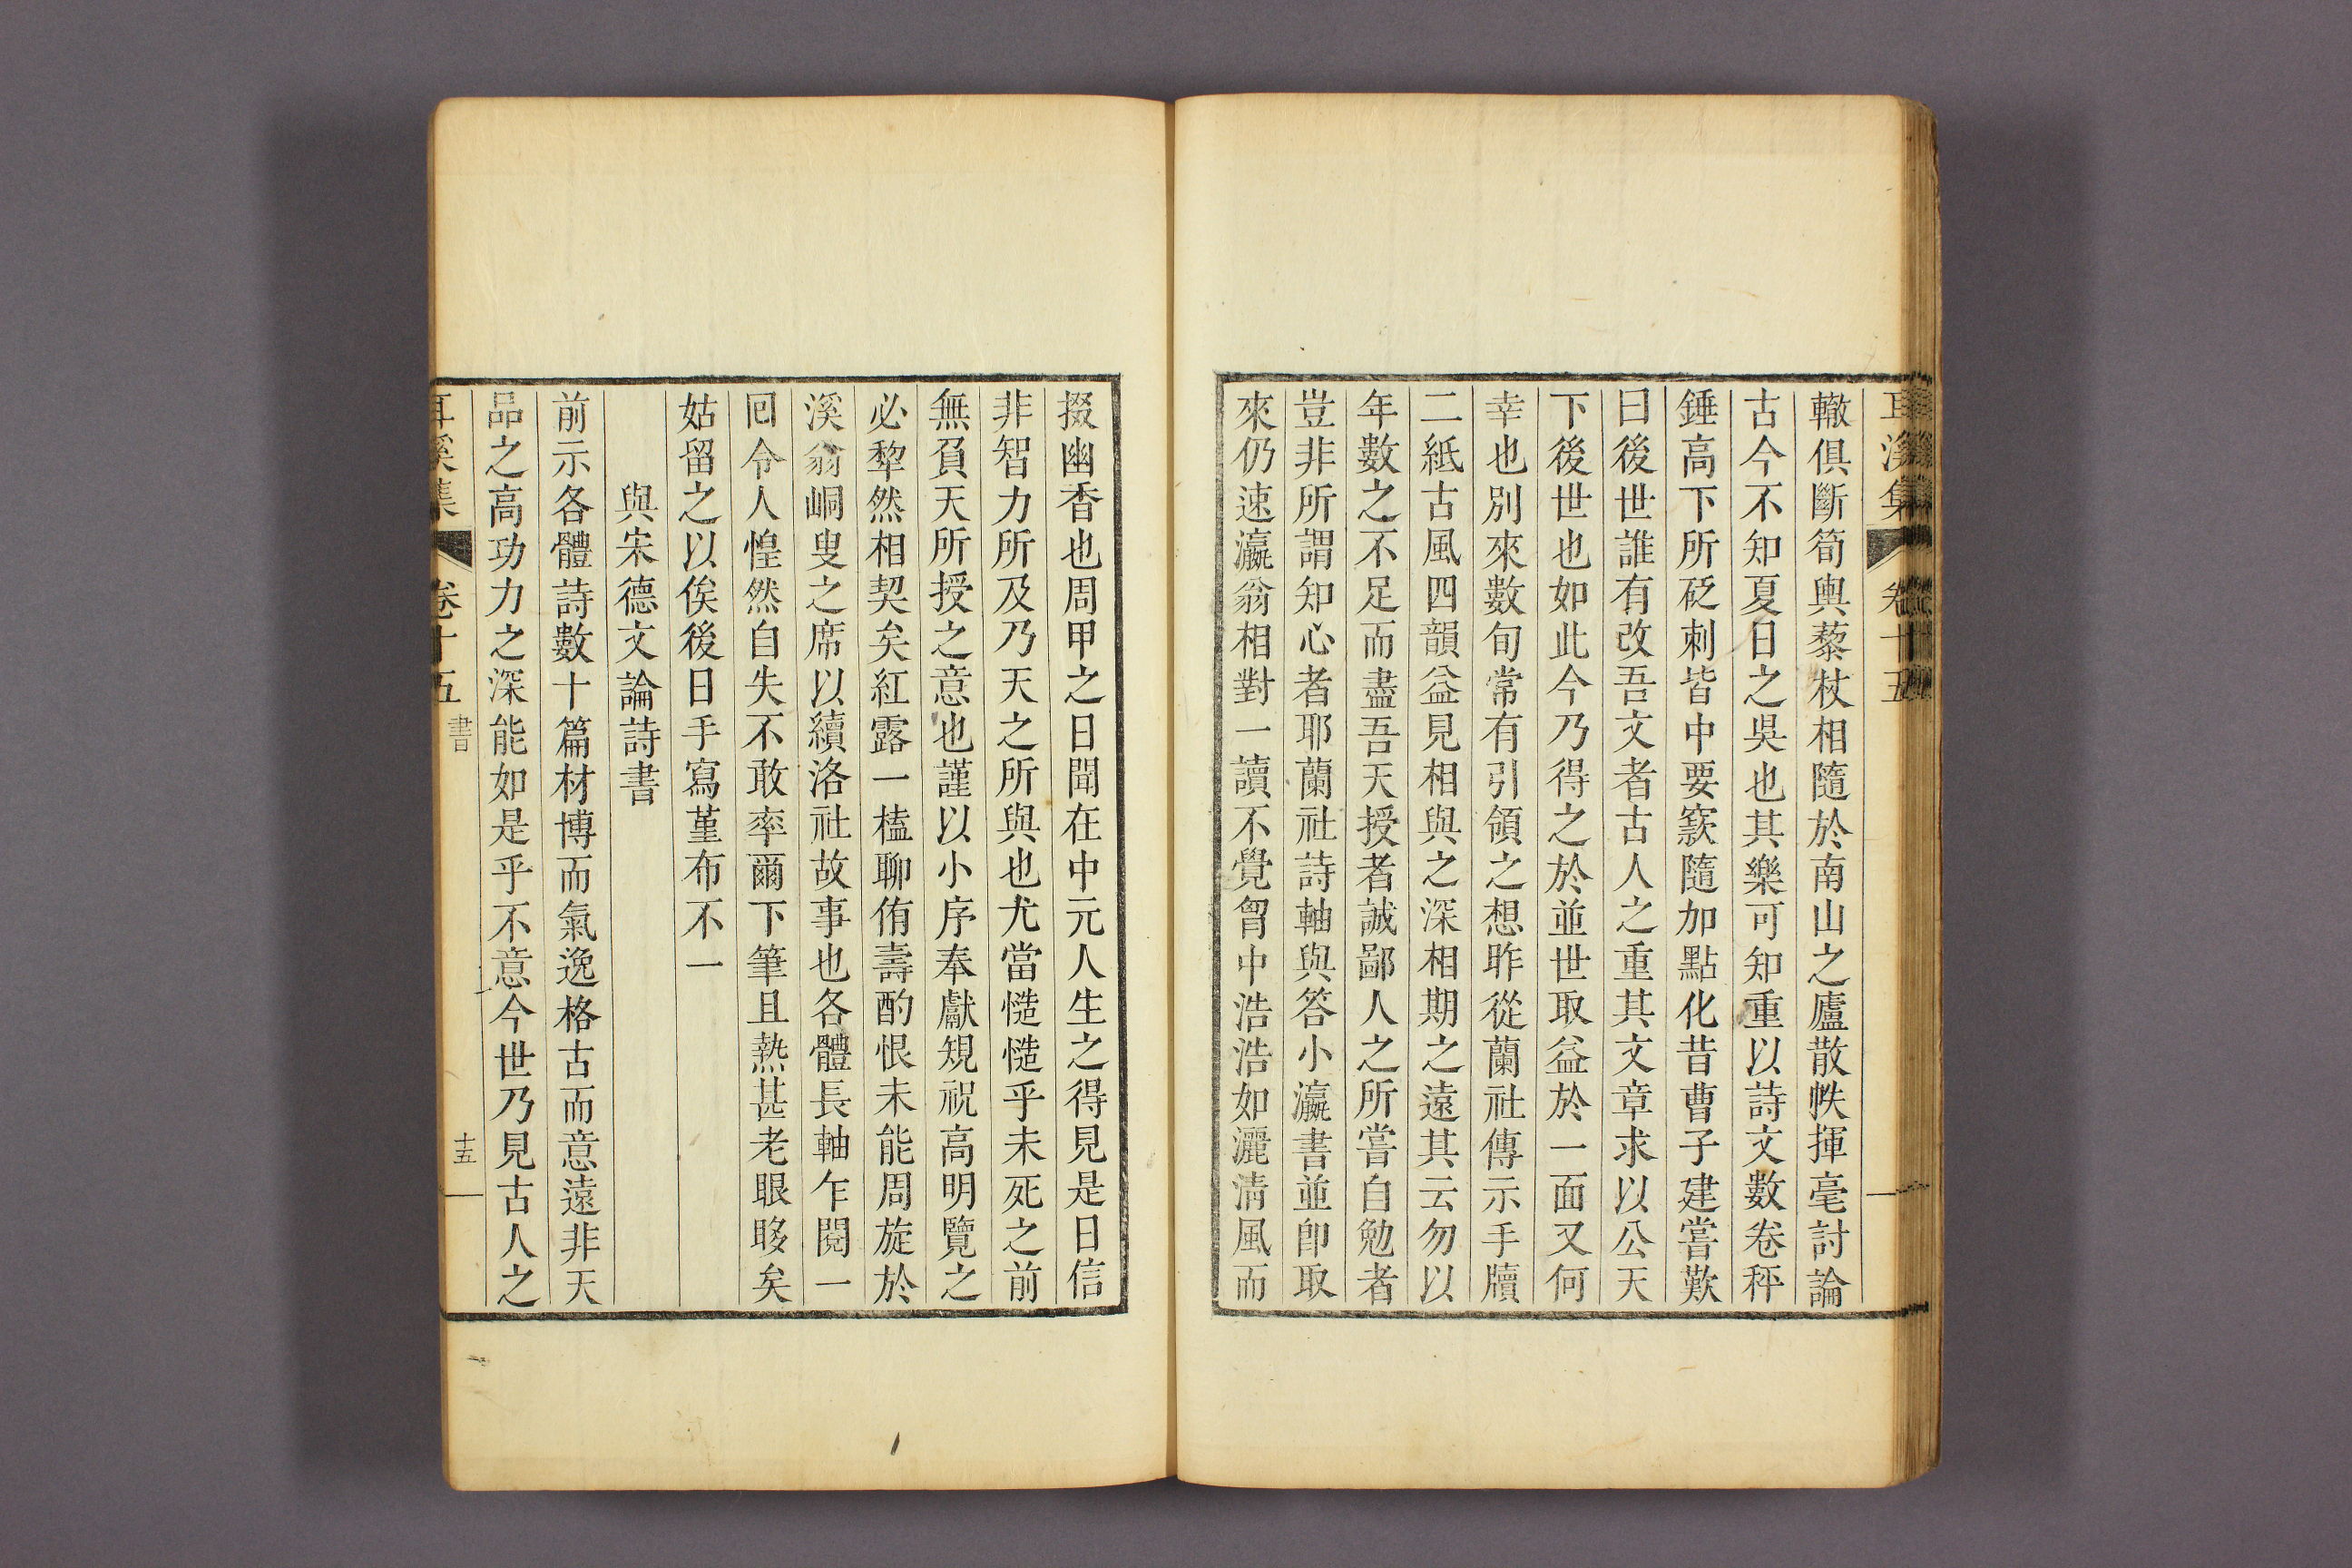 耳溪集 卷十五
轍俱斷筍輿藜杖相隨於南山之廬散帙揮毫討論
古今不知夏日之昃也其樂可知重以詩文數卷秤
錘高下所砭刺皆中要窾隨加點化昔曹子建嘗歎
曰後世誰有改吾文者古人之重其文章求以公天
下後世也如此今乃得之於並世取益於一面又何
幸也別來數旬常有引領之想昨從蘭社傳示手牘
二紙古風四韻益見相與之深相期之遠其云勿以
年數之不足而盡吾天授者誠鄙人之所嘗自勉者
豈非所謂知心者耶蘭社詩軸與答小瀛書並卽取
來仍速瀛翁相對一讀不覺胷中浩浩如灑淸風而
掇幽香也周甲之日聞在中元人生之得見是日信
非智力所及乃天之所與也尤當慥慥乎未死之前
無負天所授之意也謹以小序奉獻規祝高明覽之
必犂然相契矣紅露一榼聊侑壽酌恨未能周旋於
溪翁峒叟之席以續洛社故事也各體長軸乍閱一
囘令人惶然自失不敢率爾下筆且熱甚老眼眵矣
姑留之以俟後日手寫堇布不一
與宋德文論詩書
前示各體詩數十篇材博而氣逸格古而意遠非天
品之高功力之深能如是乎不意今世乃見古人之
耳溪集 卷十五 書 十五